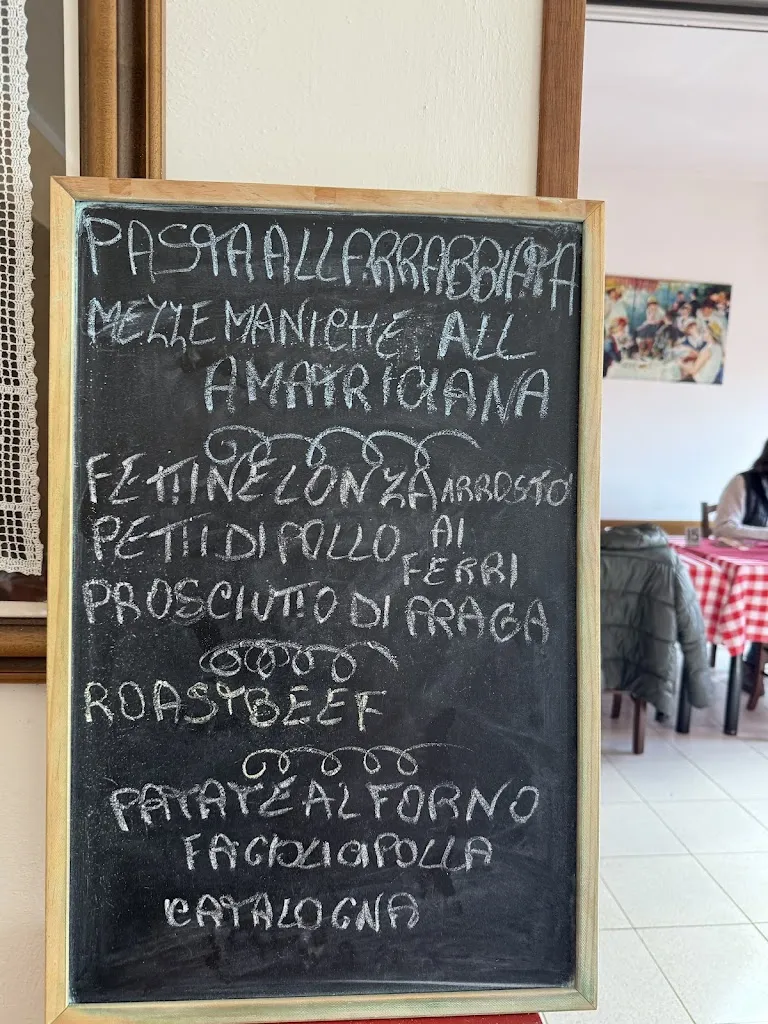 PASTA ALL ARRABBIATA
MEZZE MANICHE ALL
AMATRICIANA
FETTINE LONZA ARROSTO
PETTI DI POLLO AI
FERRI
PROSCIUTTO DI PRAGA
ROASTBEEF
PATATE AL FORNO
FAGIOLI CIPOLLA
CATALOGNA
15